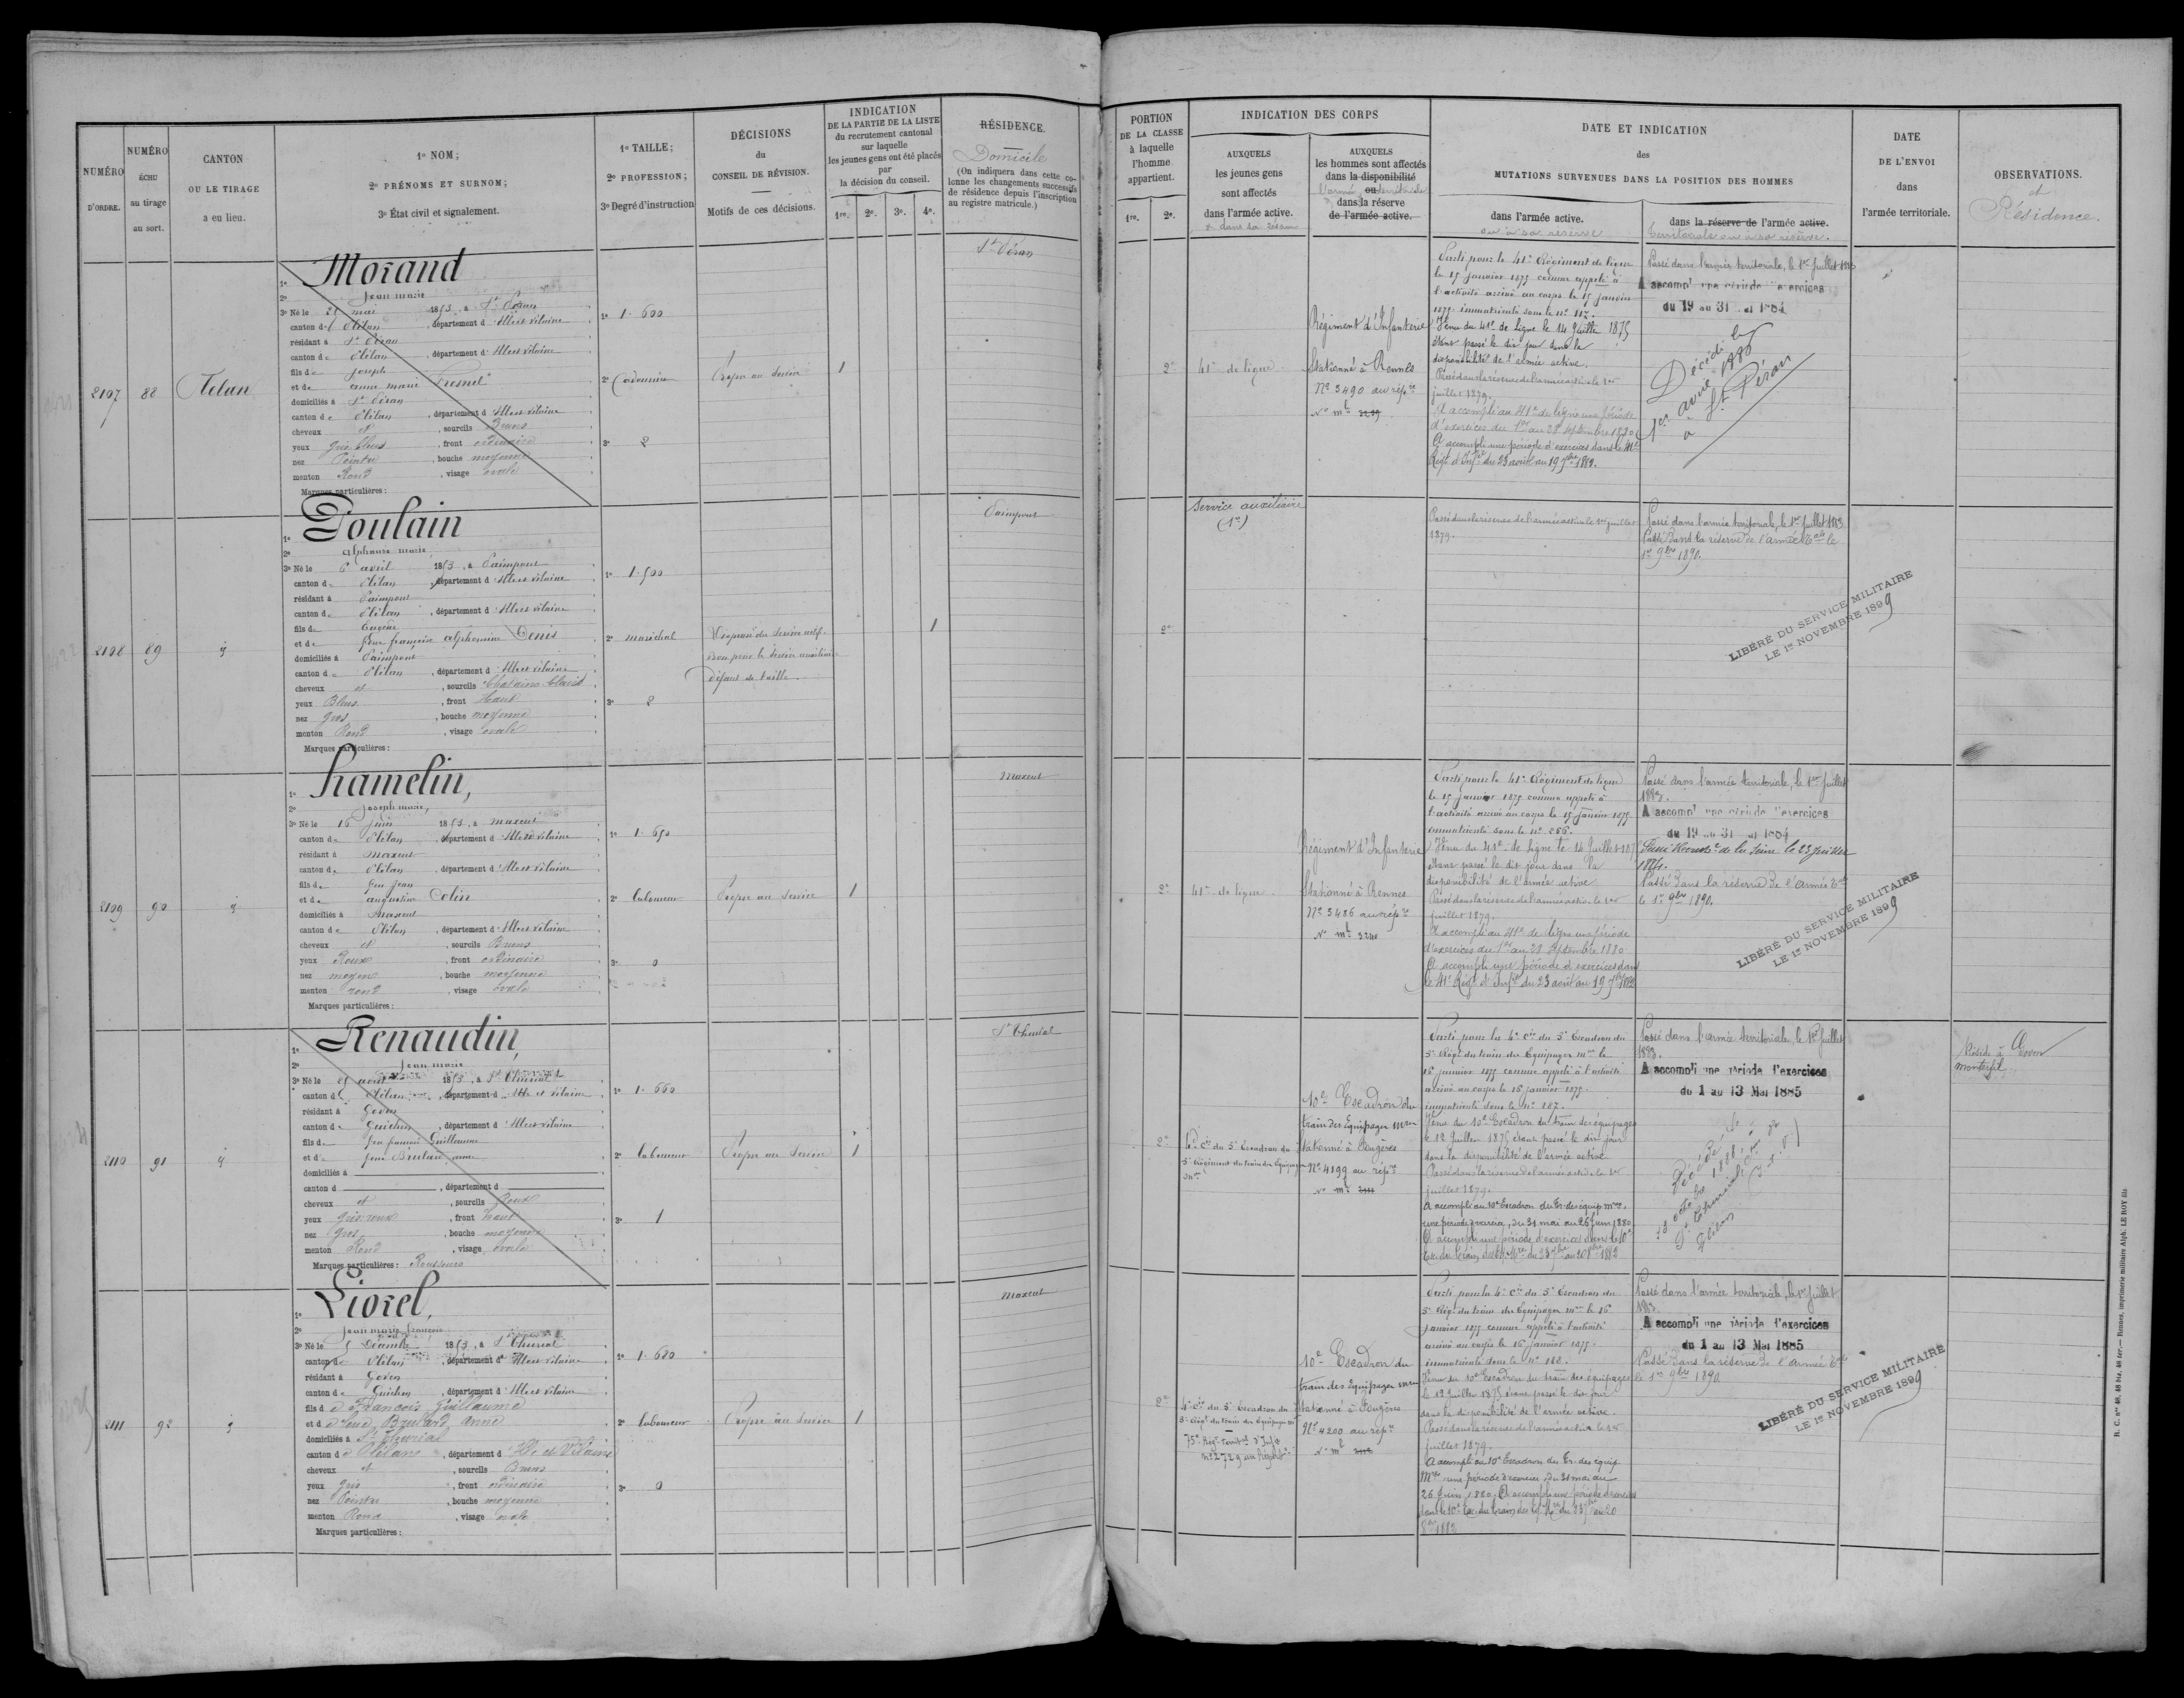 NUMÉRO
D'ORDRE.
NUMÉRO
ÉCHU
au tirage
au sort.
CANTON
OU LE TIRAGE
a eu lieu.
1º NOM;
2º PRÉNOMS ET SURNOM;
3º État civil et signalement.
1º TAILLE;
2º PROFESSION;
3º Degré d'instruction
DÉCISIONS
du
CONSEIL DE RÉVISION.
Motifs de ces décisions.
INDICATION
DE LA PARTIE DE LA LISTE
du recrutement cantonal
sur laquelle
les jeunes gens ont été placés
par
la décision du conseil.
1re. 2e. 3e. 4e.
RÉSIDENCE.
Domicile
(On indiquera dans cette co-
lonne les changements successifs
de résidence depuis l'inscription
au registre matricule.)
2107
88
Plélan
Morand
Jean marie
3º Né le 25 mai 1853, à St Péran
canton de Plélan, département d'Ille et vilaine
résidant à St Péran
canton de Plélan, département d'Ille et vilaine
fils de Joseph
et de anne marie
domiciliés à St Péran
canton de Plélan, département d'Ille et vilaine
cheveux et, sourcils Bruns
yeux Gris bleus, front ordinaire
nez Pointu, bouche moyenne
menton Rond, visage ovale
Marques particulières:
1º 1.600
2º Cordonnier
3º 2
Propre au service
1
St Péran
2108
89
id
Poulain
alphonse marie
3º Né le 6 avril 1853, à Paimpont
canton de Plélan, département d'Ille et vilaine
résidant à Paimpont
canton de Plélan, département d'Ille et vilaine
fils de Eugène
et de feue françoise alphonsine Denis
domiciliés à Paimpont
canton de Plélan, département d'Ille et vilaine
cheveux et, sourcils Chatains clairs
yeux Bleus, front haut
nez gros, bouche moyenne
menton Rond, visage ovale
Marques particulières:
1º 1.500
2º maréchal
3º 2
Dispensé du service actif.
Bon pour le service auxiliaire
défaut de taille.
1
Paimpont
2109
90
id
hamelin,
Joseph marie,
3º Né le 16 juin 1853, à maxent
canton de Plélan, département d'Ille et vilaine
résidant à maxent
canton de Plélan, département d'Ille et vilaine
fils de feu Jean
et de augustine Colin
domiciliés à Maxent
canton de Plélan, département d'Ille et vilaine
cheveux et, sourcils Bruns
yeux Roux, front ordinaire
nez moyen, bouche moyenne
menton rond, visage ovale
Marques particulières:
1º 1.650
2º laboureur
3º 0
Propre au service
1
Maxent
2110
91
id
Renaudin,
Jean marie
3º Né le 25 août 1853, à St Thurial
canton de Plélan, département d'Ille et vilaine
résidant à Goven
canton de Guichen, département d'Ille et vilaine
fils de feu françois Guillaume
et de feue Brulard anne
domiciliés à
canton d, département d
cheveux et, sourcils Roux
yeux gris roux, front haut
nez Gros, bouche moyenne
menton Rond, visage ovale
Marques particulières: Rousseurs
1º 1.660
2º laboureur
3º 1
Propre au service
1
St Thurial
2111
92
id
Liorel,
Jean marie françois
3º Né le 5 Décembre 1853, à St Thurial
canton de Plélan, département d'Ille et vilaine
résidant à Goven
canton de Guichen, département d'Ille et vilaine
fils de François Guillaume
et de feue Brulard Anne
domiciliés à St Thurial
canton de Plélan, département d'Ille et Vilaine
cheveux et, sourcils Bruns
yeux gris, front ordinaire
nez Pointu, bouche moyenne
menton Rond, visage ovale
Marques particulières:
1º 1.680
2º laboureur
3º 0
Propre au service
1
Maxent
PORTION
DE LA CLASSE
à laquelle
l'homme
appartient.
1re. 2e.
INDICATION DES CORPS
AUXQUELS
les jeunes gens
sont affectés
dans l'armée active.
et dans sa réserve
AUXQUELS
les hommes sont affectés
dans la disponibilité
ou
l'armée territoriale
dans la réserve
de l'armée active.
DATE ET INDICATION
des
MUTATIONS SURVENUES DANS LA POSITION DES HOMMES
dans l'armée active.
ou à sa réserve
dans la réserve de l'armée active.
territoriale ou à sa réserve.
DATE
DE L'ENVOI
dans
l'armée territoriale.
OBSERVATIONS.
et
Résidence.
2e
41e de ligne
Régiment d'Infanterie
Stationné à Rennes
Nº 3490 au rép.re
Nº mle
Parti pour le 41e Régiment de ligne
le 15 janvier 1875 comme appelé à
l'activité arrivé au corps le 15 janvier
1875 immatriculé sous le nº 117.
Venu du 41e de Ligne le 14 Juillet 1875
étant passé le dit jour dans la
disponibilité de l'armée active.
Passé dans la réserve de l'armée active le 1er
juillet 1879.
A accompli au 41e de ligne une période
d'exercices du 1er au 28 septembre 1880
A accompli une période d'exercices dans le 41e
Régt d'Infie du 23 août au 19 7bre 1882.
Passé dans l'armée territoriale, le 1er Juillet 1883
A accompli une période d'exercices
du 19 au 31 1884
Décédé le
1er avril 1888
à St Péran
Service auxiliaire
(1e)
2e
Passé dans la réserve de l'armée active le 1er juillet
1879.
Passé dans l'armée territoriale, le 1er Juillet 1883
Passé dans la réserve de l'armée Tale le
1er 9bre 1890.
LIBÉRÉ DU SERVICE MILITAIRE
LE 1er NOVEMBRE 1899
2e
41e de ligne
Régiment d'Infanterie
Stationné à Rennes
Nº 3486 au rép.re
Nº mle 3240
Parti pour le 41e Régiment de ligne
le 15 janvier 1875 comme appelé à
l'activité arrivé au corps le 15 janvier 1875
immatriculé sous le nº 266.
Venu du 41e de Ligne le 14 Juillet 1875
étant passé le dit jour dans la
disponibilité de l'armée active
Passé dans la réserve de l'armée active le 1er
juillet 1879.
A accompli au 41e de ligne une période
d'exercices du 1er au 28 septembre 1880
A accompli une période d'exercices dans
le 41e Régt d'Infie du 23 août au 19 7bre 1882
Passé dans l'armée territoriale, le 1er Juillet
1883.
A accompli une période d'exercices
du 19 au 31 1884
de la Seine le 23 Juillet
1884.
Passé dans la réserve de l'armée Tale
le 1er 9bre 1890.
LIBÉRÉ DU SERVICE MILITAIRE
LE 1er NOVEMBRE 1899
2e
Cie du 5e Escadron du
5e Régiment du train des Equipages
mres
10e Escadron du
train des Equipages mres
Stationné à Fougères
Nº 4199 au rép.re
Nº mle
Parti pour la 4e Cie du 5e Escadron du
5e Régt du train des Equipages mres le
16 janvier 1875 comme appelé à l'activité
arrivé au corps le 16 janvier 1875.
immatriculé sous le nº 187.
Venu du 10e Escadron du train des équipages
le 12 Juillet 1875 étant passé le dit jour
dans la disponibilité de l'armée active
Passé dans la réserve de l'armée active le 1er
juillet 1879.
A accompli au 10e Escadron du Tr. des équip mres,
une période d'exercices, du 31 mai au 26 Juin 1880
A accompli une période d'exercices dans le 10e
Passé dans l'armée territoriale, le 1er Juillet
1883.
A accompli une période d'exercices
du 1 au 13 Mai 1885
Décédé le
28 octobre 1888, à
St Thurial, Con de
Plélan (I.&V.)
Réside à Goven
monterfil
2e
4e Cie du 5e Escadron du
5e Régt du train des Equipages mres
75e Régt Territal d'Infie
nº 2729 au Répre
10e Escadron du
train des Equipages mres
Stationné à Fougères
Nº 4200 au rép.re
Nº mle
Parti pour la 4e Cie du 5e Escadron du
5e Régt du train des Equipages mres le 16
janvier 1875 comme appelé à l'activité
arrivé au corps le 16 janvier 1875.
immatriculé sous le nº 188.
Venu du 10e Escadron du train des équipages
le 12 Juillet 1875 étant passé le dit jour
dans la disponibilité de l'armée active.
Passé dans la réserve de l'armée active le 1er
juillet 1879.
A accompli au 10e Escadron du Tr. des équip
Mres une période d'exercices du 31 mai au
26 Juin 1880. A accompli une période d'exercices
8bre 1882
Passé dans l'armée territoriale, le 1er Juillet
1883.
A accompli une période d'exercices
du 1 au 13 Mai 1885
Passé dans la réserve de l'armée Tale
le 1er 9bre 1890.
LIBÉRÉ DU SERVICE MILITAIRE
LE 1er NOVEMBRE 1899
R. C. nos 48, 48 bis, 48 ter. — Rennes, imprimerie militaire Alph. LE ROY fils